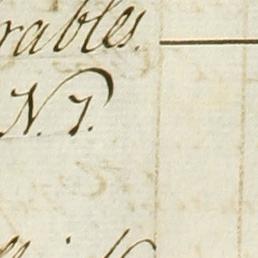 rables.
N. 7.